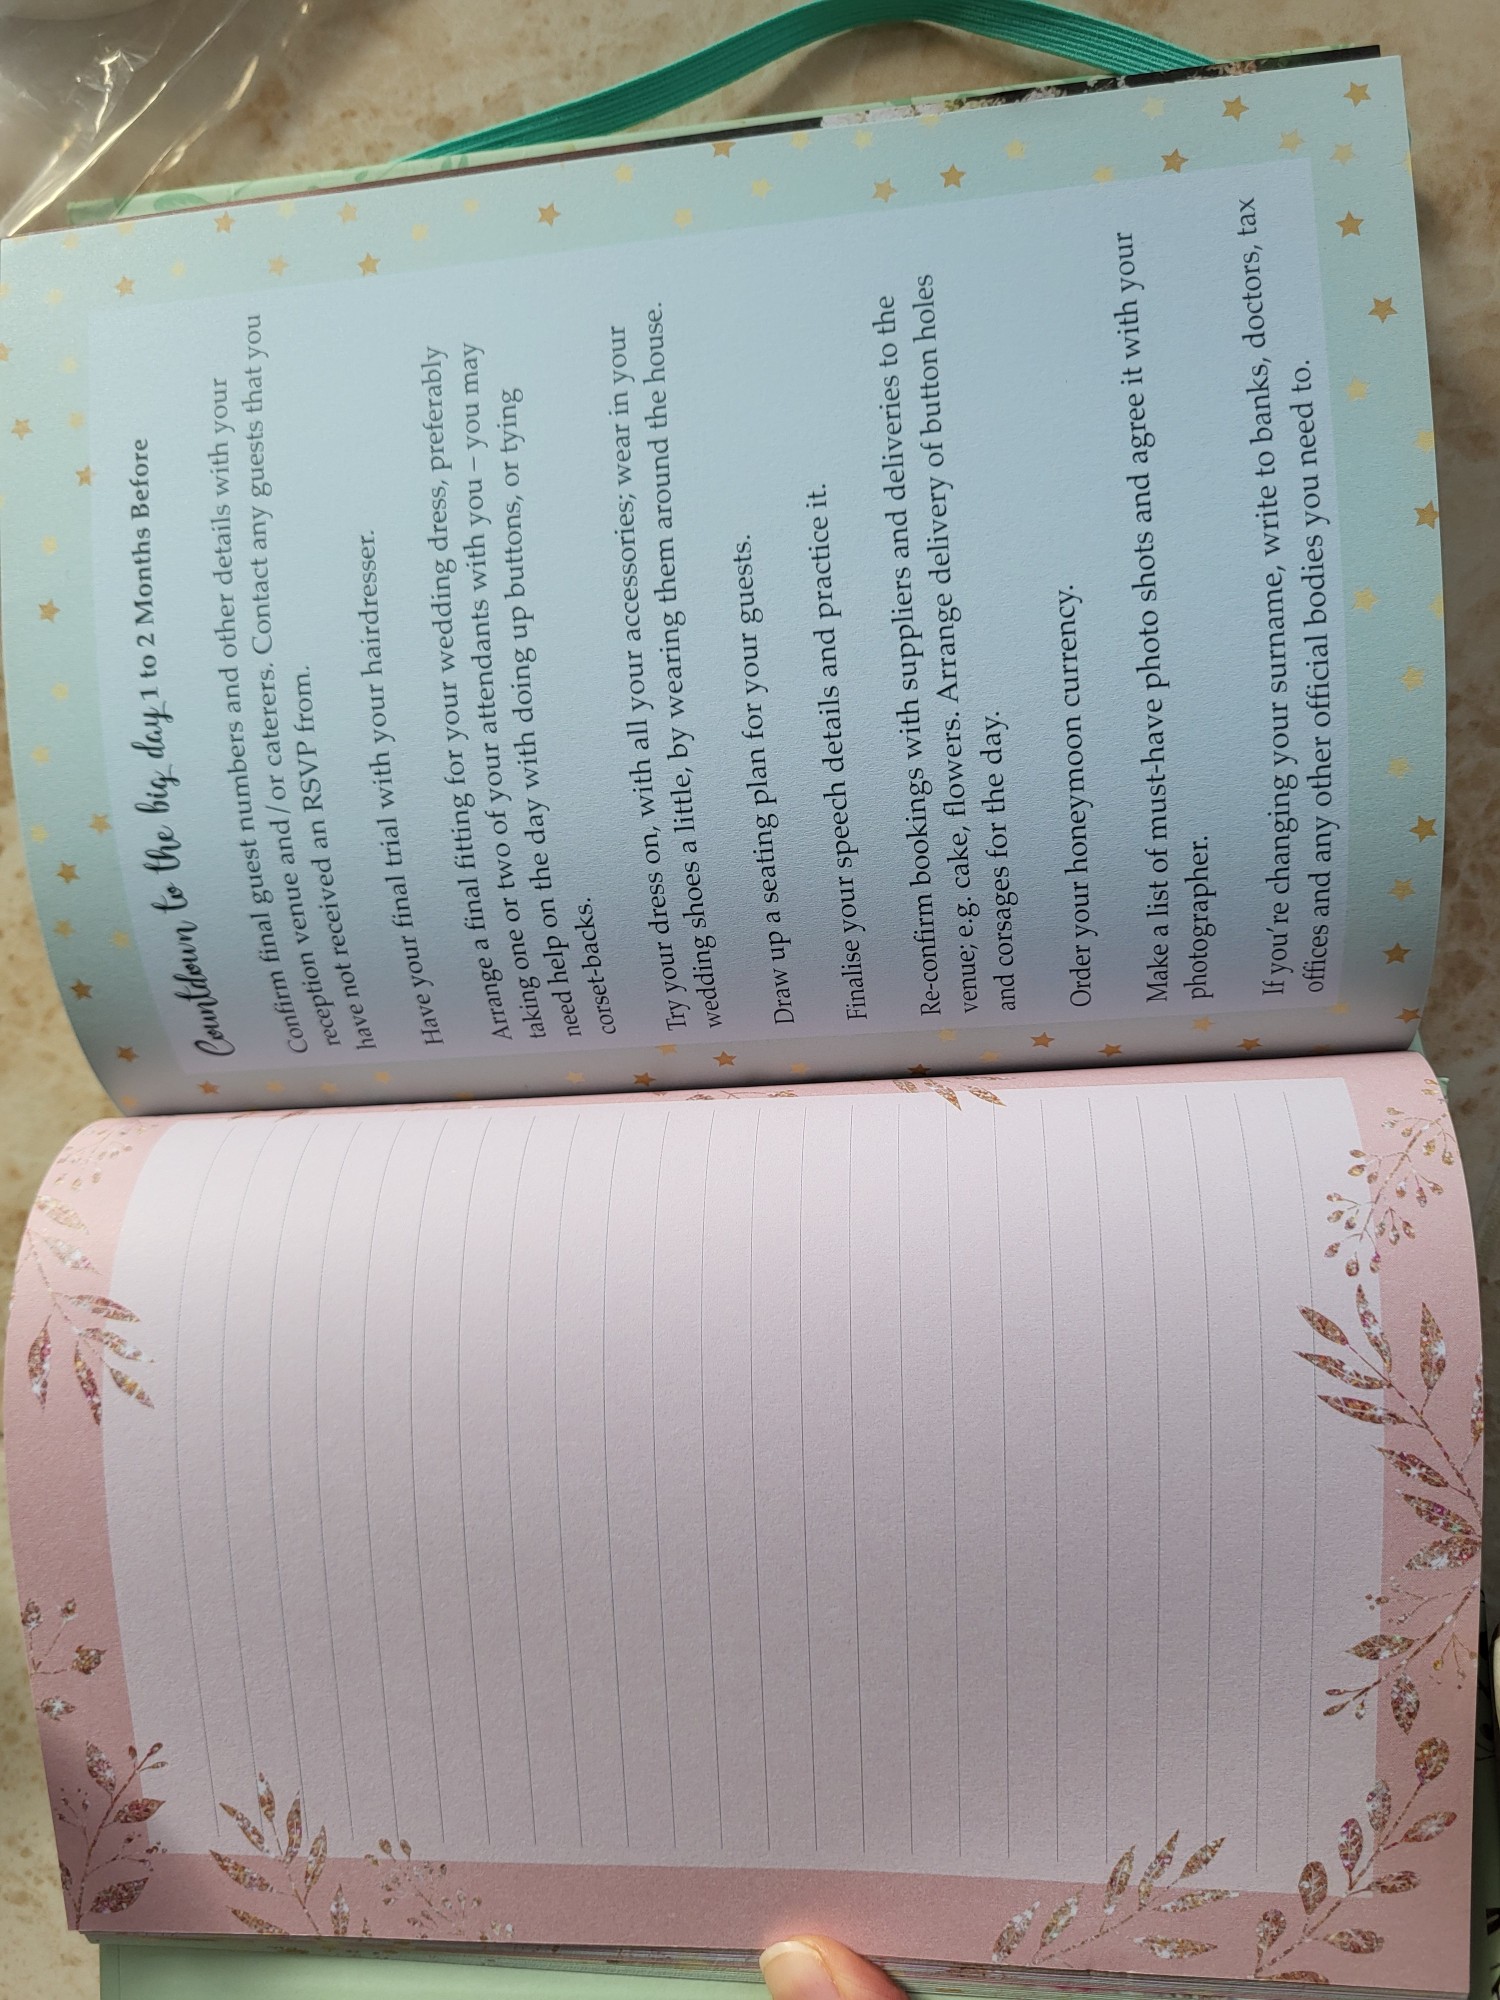 Countdown to the big day, 1 to 2 Months Before
Confirm final guest numbers and other details with your
reception venue and/or caterers. Contact any guests that you
have not received an RSVP from.
Have your final trial with your hairdresser.
Arrange a final fitting for your wedding dress, preferably
taking one or two of your attendants with you – you may
need help on the day with doing up buttons, or tying
corset-backs.
Try your dress on, with all your accessories; wear in your
wedding shoes a little, by wearing them around the house.
Draw up a seating plan for your guests.
Finalise your speech details and practice it.
Re-confirm bookings with suppliers and deliveries to the
venue; e.g. cake, flowers. Arrange delivery of button holes
and corsages for the day.
Order your honeymoon currency.
Make a list of must-have photo shots and agree it with your
photographer.
If you're changing your surname, write to banks, doctors, tax
offices and any other official bodies you need to.